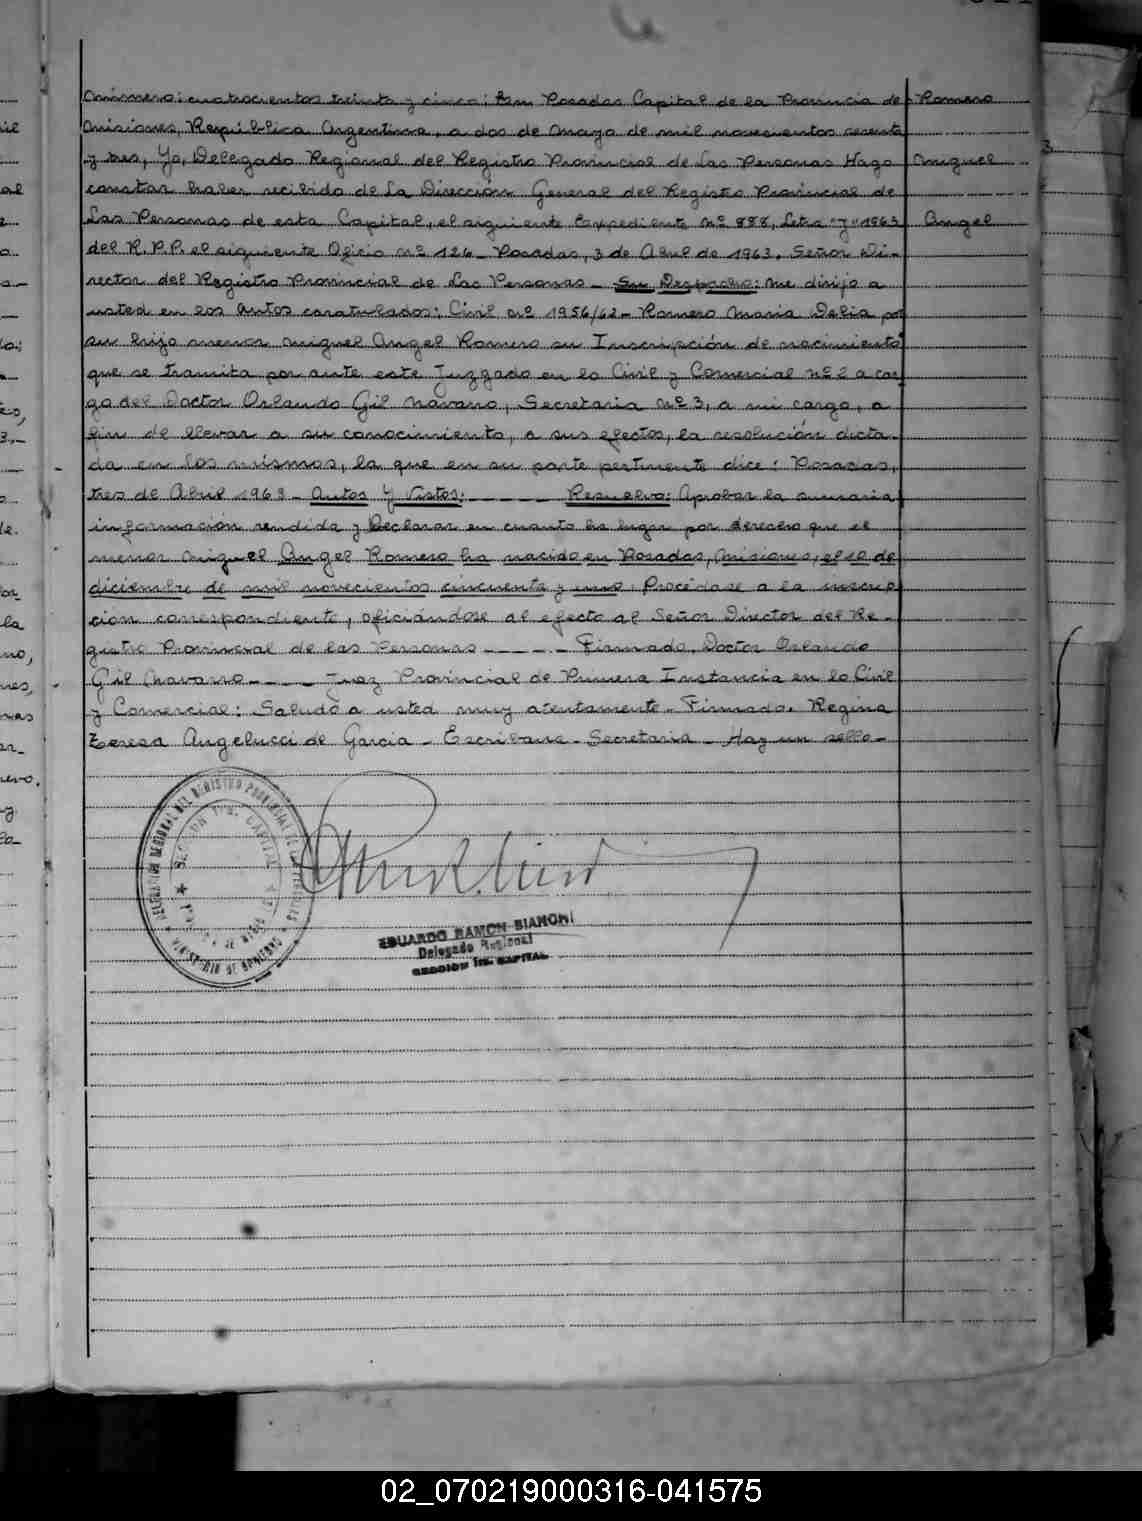 Número: cuatrocientos treinta y cinco: En Posadas Capital de la Provincia de
Misiones, República Argentina, a dos de Mayo de mil novecientos sesenta
y tres, Yo, Delegado Regional del Registro Provincial de Las Personas Hago
constar haber recibido de La Dirección General del Registro Provincial de
Las Personas de esta Capital, el siguiente Expediente Nº 888, Letra "J" 1963
del R.P.P. el siguiente Oficio nº 126_ Posadas, 3 de Abril de 1963. Señor Di-
rector del Registro Provincial de Las Personas_ Su Despacho: Me dirijo a
usted en los autos caratulados: Civil nº 1956/62_ Romero Maria Delia por
su hijo menor Miguel Angel Romero su Inscripción de nacimiento"
que se tramita por ante este Juzgado en lo Civil y Comercial nº 2 a car-
go del Doctor Orlando Gil Navarro, Secretaria nº 3, a mi cargo, a
fin de llevar a su conocimiento, a sus efectos, la resolución dicta-
da en los mismos, la que en su parte pertinente dice: Posadas,
tres de Abril 1963_ Autos Y Vistos:_ _ _ _ Resuelvo: Aprobar la sumaria
información rendida y Declarar en cuanto ha lugar por derecho que el
menor Miguel Angel Romero ha nacido en Posadas, Misiones, el 10 de
diciembre de mil novecientos cincuenta y uno. Procédase a la inscrip
ción correspondiente, oficiándose al efecto al Señor Director del Re-
gistro Provincial de las Personas_ _ _ _ Firmado. Doctor Orlando
Gil Navarro_ _ _ _ Juez Provincial de Primera Instancia en lo Civil
y Comercial: Saludo a usted muy atentamente_ Firmado. Regina
Teresa Angelucci de Garcia_ Escribana_ Secretaria_ Hay un sello_
Romero
Miguel
Angel
DELEGACION REGIONAL DEL REGISTRO PROVINCIAL DE LAS PERSONAS
MINISTERIO DE GOBIERNO
SECCION 1ra. CAPITAL
EDUARDO RAMON BIANCHI
Delegado Regional
SECCION 1ra. CAPITAL
02_070219000316-041575